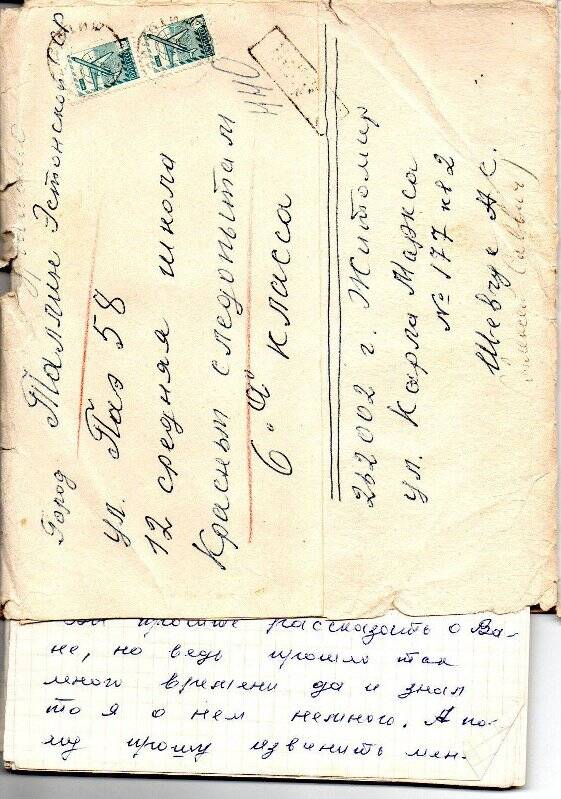 Город Таллин Эстонской ССР
ул. Паэ 58
12 средняя школа
Красным следопытам
6 "А" класса
262002 г. Житомир
ул. Карла Маркса
№ 177 кв 2
Шевчук А. С.
Вы просите рассказать о Ва-
не, но ведь прошло так
много времени да и знал
то я о нем немного. А по-
му прошу извинить мен-